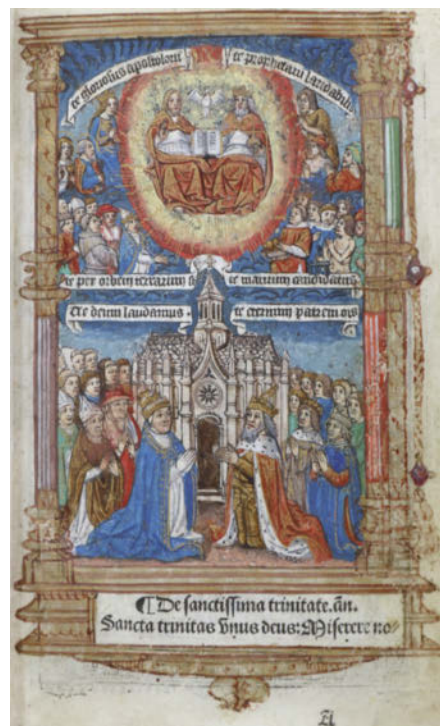 te gloriosus apostoloru
te prophetaru laudabilis
te per orbem terrarum s
te martirum candidatus
Te deum laudamus .
te eternum patrem ois
¶ De sanctissima trinitate. añ.
Sancta trinitas vnus deus: Miserere no⸗
A